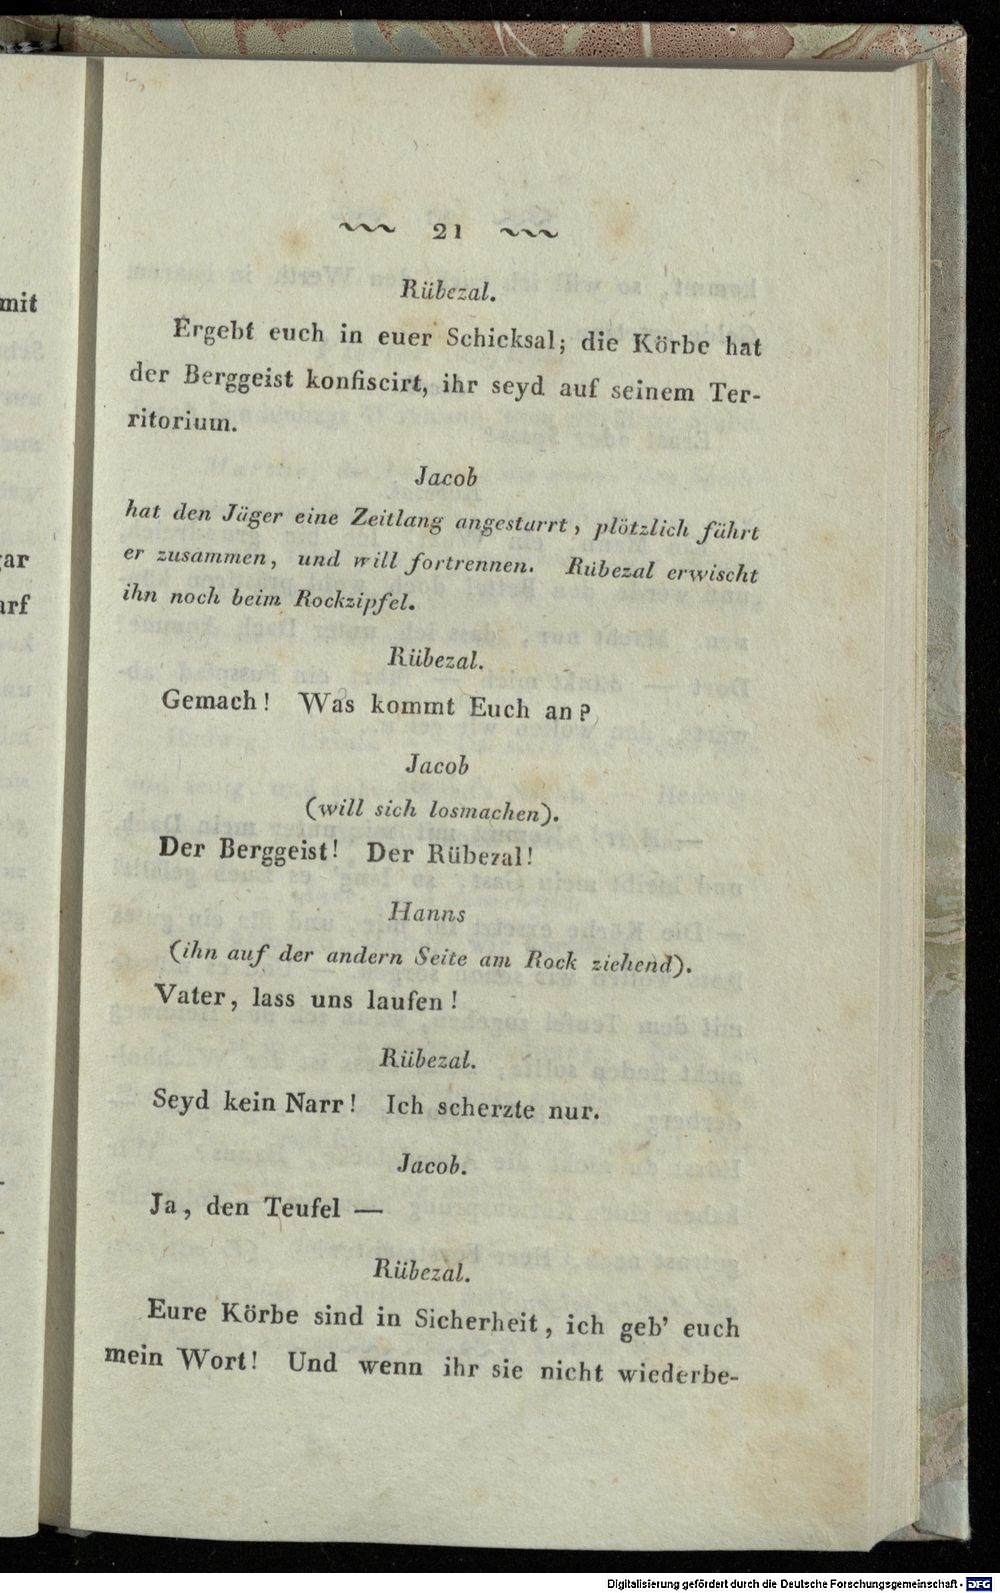 mit
gar
arf
21
Rübezal.
Ergebt euch in euer Schicksal; die Körbe hat
der Berggeist konfiscirt, ihr seyd auf seinem Ter-
ritorium.
Jacob
hat den Jäger eine Zeitlang angestarrt, plötzlich fährt
er zusammen, und will fortrennen. Rübezal erwischt
ihn noch beim Rockzipfel.
Rübezal.
Gemach! Was kommt Euch an?
Jacob
(will sich losmachen).
Der Berggeist! Der Rübezal!
Hanns
(ihn auf der andern Seite am Rock ziehend).
Vater, lass uns laufen!
Rübezal.
Seyd kein Narr! Ich scherzte nur.
Jacob.
Ja, den Teufel —
Rübezal.
Eure Körbe sind in Sicherheit, ich geb' euch
mein Wort! Und wenn ihr sie nicht wiederbe-
Digitalisierung gefördert durch die Deutsche Forschungsgemeinschaft - DFG